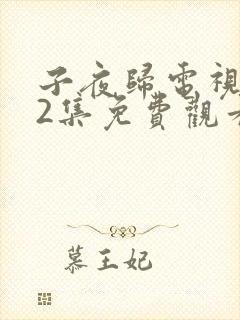 子夜歸電視
2集免費觀看
慕王妃